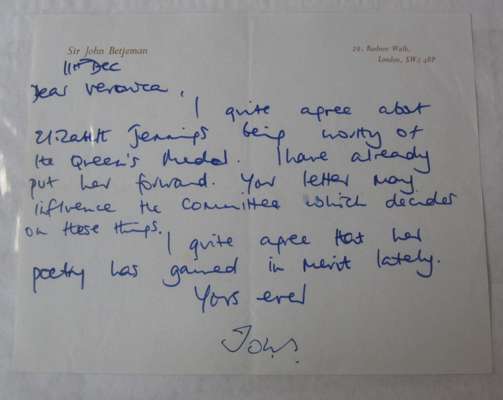 Sir John Betjeman
29, Radnor Walk,
London, SW3 4BP
11th Dec
Dear Veronica,
I quite agree about
Elizabeth Jennings being worthy of
the Queen's Medal. I have already
put her forward. Your letter may
influence the Committee which decides
on these things.
I quite agree that her
poetry has gained in merit lately.
Yours ever
John